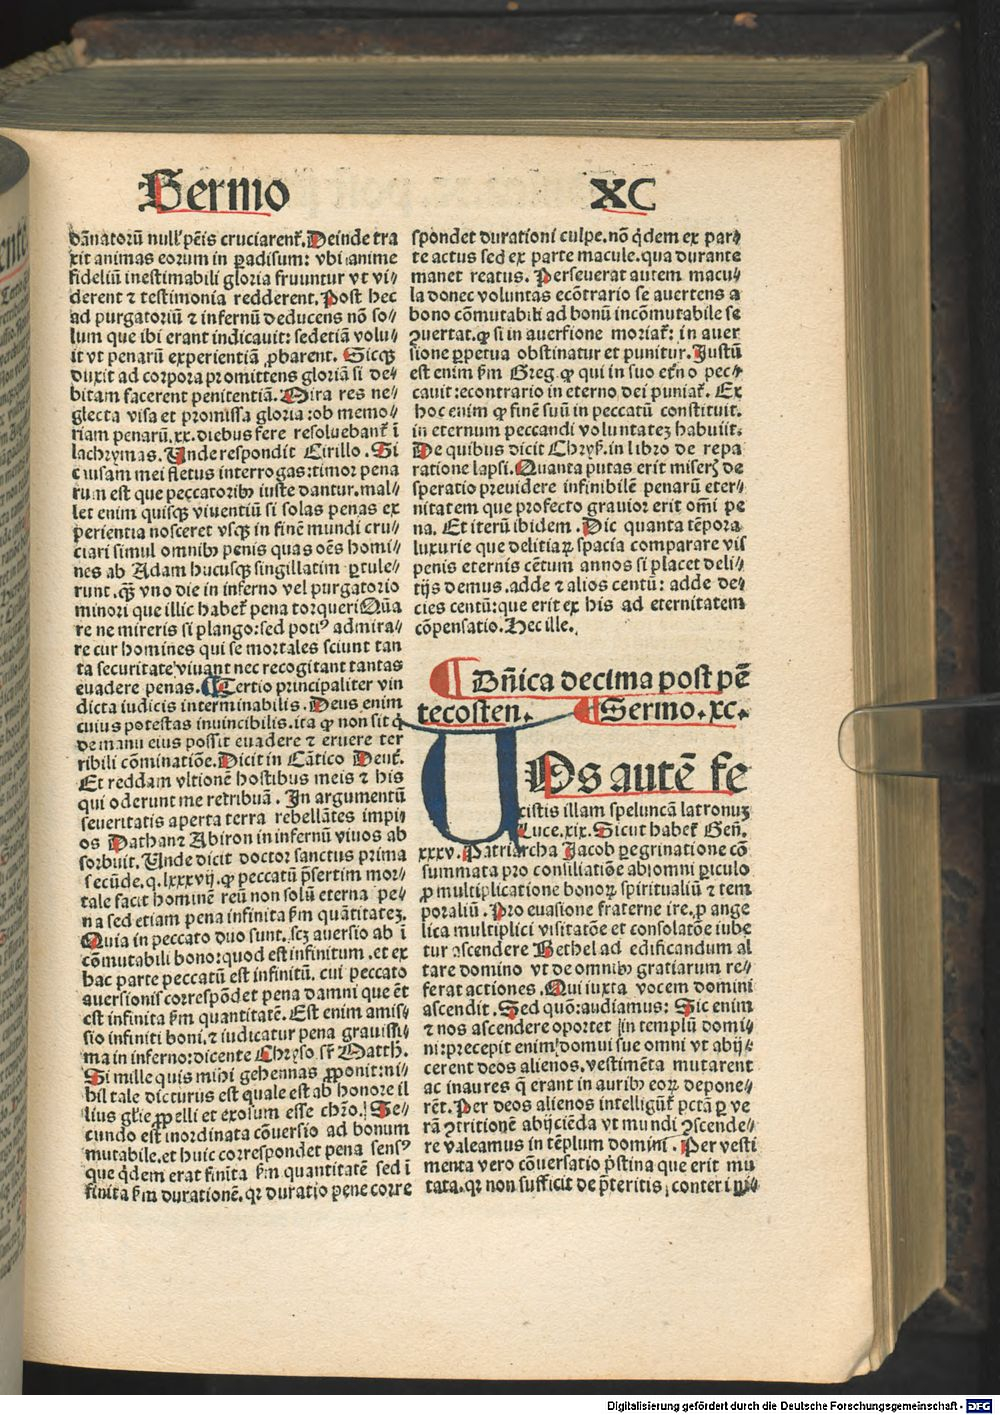 Sermo XC
dãnatorũ null' pẽis cruciarent᷑. Deinde tra
xit animas eorum in ꝑadisum: vbi anime
fideliũ inestimabili gloria fruuntur vt vi⸗
derent ⁊ testimonia redderent. Post hec
ad purgatoriũ ⁊ infernũ deducens nõ so⸗
lum que ibi erant indicauit: sed etiã volu⸗
it vt penarũ experientiã ꝓbarent. Sicqꝫ
duxit ad corpora promittens gloriã si de⸗
bitam facerent penitentiã. Mira res ne⸗
glecta visa et promissa gloria: ob memo⸗
riam penarũ .xx. diebus fere resoluebant᷑ ĩ
lachrymas. Unde respondit Cirillo. Si
causam mei fletus interrogas: timor pena
rum est que peccatoribꝰ iuste dantur. mal⸗
let enim quisqꝫ viuentiũ si solas penas ex
perientia nosceret vsqꝫ in finẽ mundi cru⸗
ciari simul omnibꝰ penis quas oẽs homi⸗
nes ab Adam hucusqꝫ singillatim ꝑtule⸗
runt. qꝫ̃ vno die in inferno vel purgatorio
minori que illic habet᷑ pena torqueri Quã
re ne mireris si plango: sed potiꝰ admira⸗
re cur homines qui se mortales sciunt tan
ta securitate viuant nec recogitant tantas
euadere penas. ¶ Tertio principaliter vin
dicta iudicis interminabilis. Deus enim
cuius potestas inuincibilis. ita ꝙ non sit q̇
de manu eius possit euadere ⁊ eruere ter
ribili cõminatiõe. Dicit in Cãtico Deut᷑.
Et reddam vltionẽ hostibus meis ⁊ his
qui oderunt me retribuã. In argumentũ
seueritatis aperta terra rebellãtes impi⸗
os Dathan ⁊ Abiron in infernũ viuos ab
sorbuit. Unde dicit doctor sanctus prima
secũde. q. lxxxvij. ꝙ peccatũ p̃sertim mor⸗
tale facit hominẽ reũ non solũ eterna pe⸗
na sed etiam pena infinita ẞm quãtitatez.
Quia in peccato duo sunt. scꝫ auersio ab ĩ
cõmutabili bono: quod est infinitum. et ex
hac parte peccatũ est infinitũ. cui peccato
auersionis correspõdet pena damni que ẽt
est infinita ẞm quantitatẽ. Est enim amis⸗
sio infiniti boni. ⁊ iudicatur pena grauissi⸗
ma in inferno: dicente Chryso. sr̃ Matth.
Si mille quis mihi gehennas ꝓponit: ni⸗
hil tale dicturus est quale est ab honore il
lius gl'ie ꝓpelli et exosum esse chr̃o. Se⸗
cundo est inordinata cõuersio ad bonum
mutabile. et huic correspondet pena sensꝰ
que q̇dem erat finita ẞm quantitatẽ sed ĩ
finita ẞm durationẽ. qꝛ duratio pene corre
spondet durationi culpe. nõ q̇dem ex par⸗
te actus sed ex parte macule. qua durante
manet reatus. Perseuerat autem macu⸗
la donec voluntas ecõtrario se auertens a
bono cõmutabili ad bonũ incõmutabile se
ꝯuertat. ꝙ si in auersione moriat᷑: in auer
sione ꝑpetua obstinatur et punitur. Justũ
est enim ẞm Greg. ꝙ qui in suo et᷑no pec⸗
cauit: econtrario in eterno dei puniat᷑. Ex
hoc enim ꝙ finẽ suũ in peccatũ constituit.
in eternum peccandi voluntatez habuit:
De quibus dicit Chryẞ. in libro de repa
ratione lapsi. Quanta putas erit miserꝫ de
speratio preuidere infinibilẽ penarũ eter⸗
nitatem que profecto grauior erit om̃i pe
na. Et iterũ ibidem. Dic quanta tẽpora
luxurie que delitiaꝝ spacia comparare vis
penis eternis cẽtum annos si placet deli⸗
tijs demus. adde ⁊ alios centũ: adde de⸗
cies centũ: que erit ex his ad eternitatem
cõpensatio. Hec ille.
¶ Dñica decima post pẽ
tecosten. ¶ Sermo. xc.
UOs autẽ fe
cistis illam speluncã latronuꝫ
Luce. xix. Sicut habet᷑ Geñ.
xxxv. Patriarcha Jacob ꝑegrinatione cõ
summata pro consiliatiõe ab omni ꝑiculo
ꝓ multiplicatione bonoꝝ spiritualiũ ⁊ tem
poraliũ. Pro euasione fraterne ire. ꝓ ange
lica multiplici visitatõe et consolatõe iube
tur ascendere Bethel ad edificandum al
tare domino vt de omnibꝰ gratiarum re⸗
ferat actiones. Qui iuxta vocem domini
ascendit. Sed quõ: audiamus: Sic enim
⁊ nos ascendere oportet in templũ domi⸗
ni: precepit enim domui sue omni vt abij⸗
cerent deos alienos. vestimẽta mutarent
ac inaures q̃ erant in auribꝰ eoꝝ depone⸗
rẽt. Per deos alienos intelligũt᷑ pctã ꝑ ve
rã ꝯtritionẽ abijciẽda vt mundi ꝯscende⸗
re valeamus in tẽplum domini. Per vesti
menta vero cõuersatio p̃stina que erit mu
tata. qꝛ non sufficit de p̃teritis conteri ni⸗
Digitalisierung gefördert durch die Deutsche Forschungsgemeinschaft - DFG